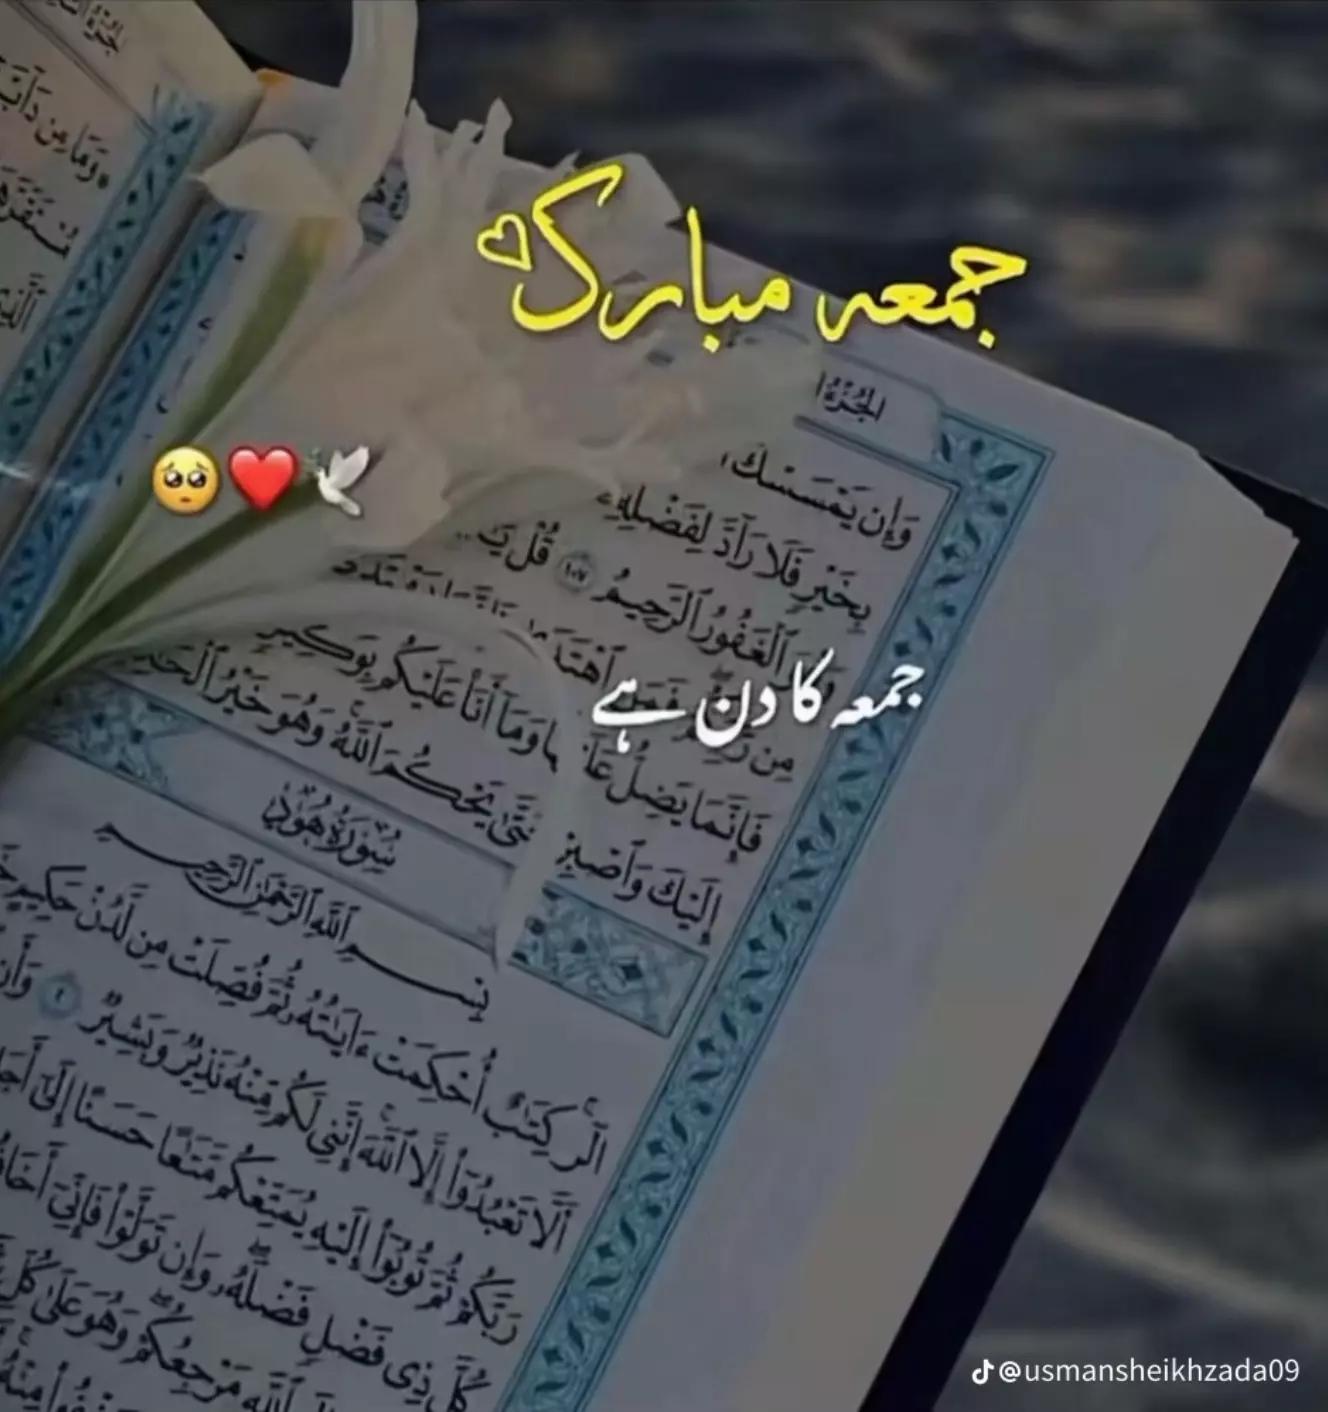 جمعہ مبارک
🥺❤️🕊️
جمعہ کا دن ہے
وَمَا مِن دَآبَّ
ٱلْجُزْءُ ٱ
وَإِن يَمْسَسْكَ ٱ
بِخَيْرٍ فَلَا رَآدَّ لِفَضْلِهِۦ
ٱلْغَفُورُ ٱلرَّحِيمُ ١٠٧ قُلْ يَـ
مِن رَّبِّكُمْ فَمَنِ ٱهْتَدَ
فَإِنَّمَا يَضِلُّ عَلَيْهَا وَمَآ أَنَا۠ عَلَيْكُم بِوَكِيلٍ
إِلَيْكَ وَٱصْبِرْ حَتَّىٰ يَحْكُمَ ٱللَّهُ وَهُوَ خَيْرُ ٱلْحَـ
سُورَةُ هُودٍ
بِسْمِ ٱللَّهِ ٱلرَّحْمَٰنِ ٱلرَّحِيمِ
الٓر كِتَٰبٌ أُحْكِمَتْ ءَايَٰتُهُۥ ثُمَّ فُصِّلَتْ مِن لَّدُنْ حَكِيمٍ
أَلَّا تَعْبُدُوٓا۟ إِلَّا ٱللَّهَ إِنَّنِى لَكُم مِّنْهُ نَذِيرٌ وَبَشِيرٌ ٢ وَأَنِ
رَبَّكُمْ ثُمَّ تُوبُوٓا۟ إِلَيْهِ يُمَتِّعْكُم مَّتَٰعًا حَسَنًا إِلَىٰٓ أَجَـ
كُلَّ ذِى فَضْلٍ فَضْلَهُۥ وَإِن تَوَلَّوْا۟ فَإِنِّىٓ أَخَافُ
ٱللَّهِ مَرْجِعُكُمْ وَهُوَ عَلَىٰ كُلِّ
مِنْهُ
@usmansheikhzada09